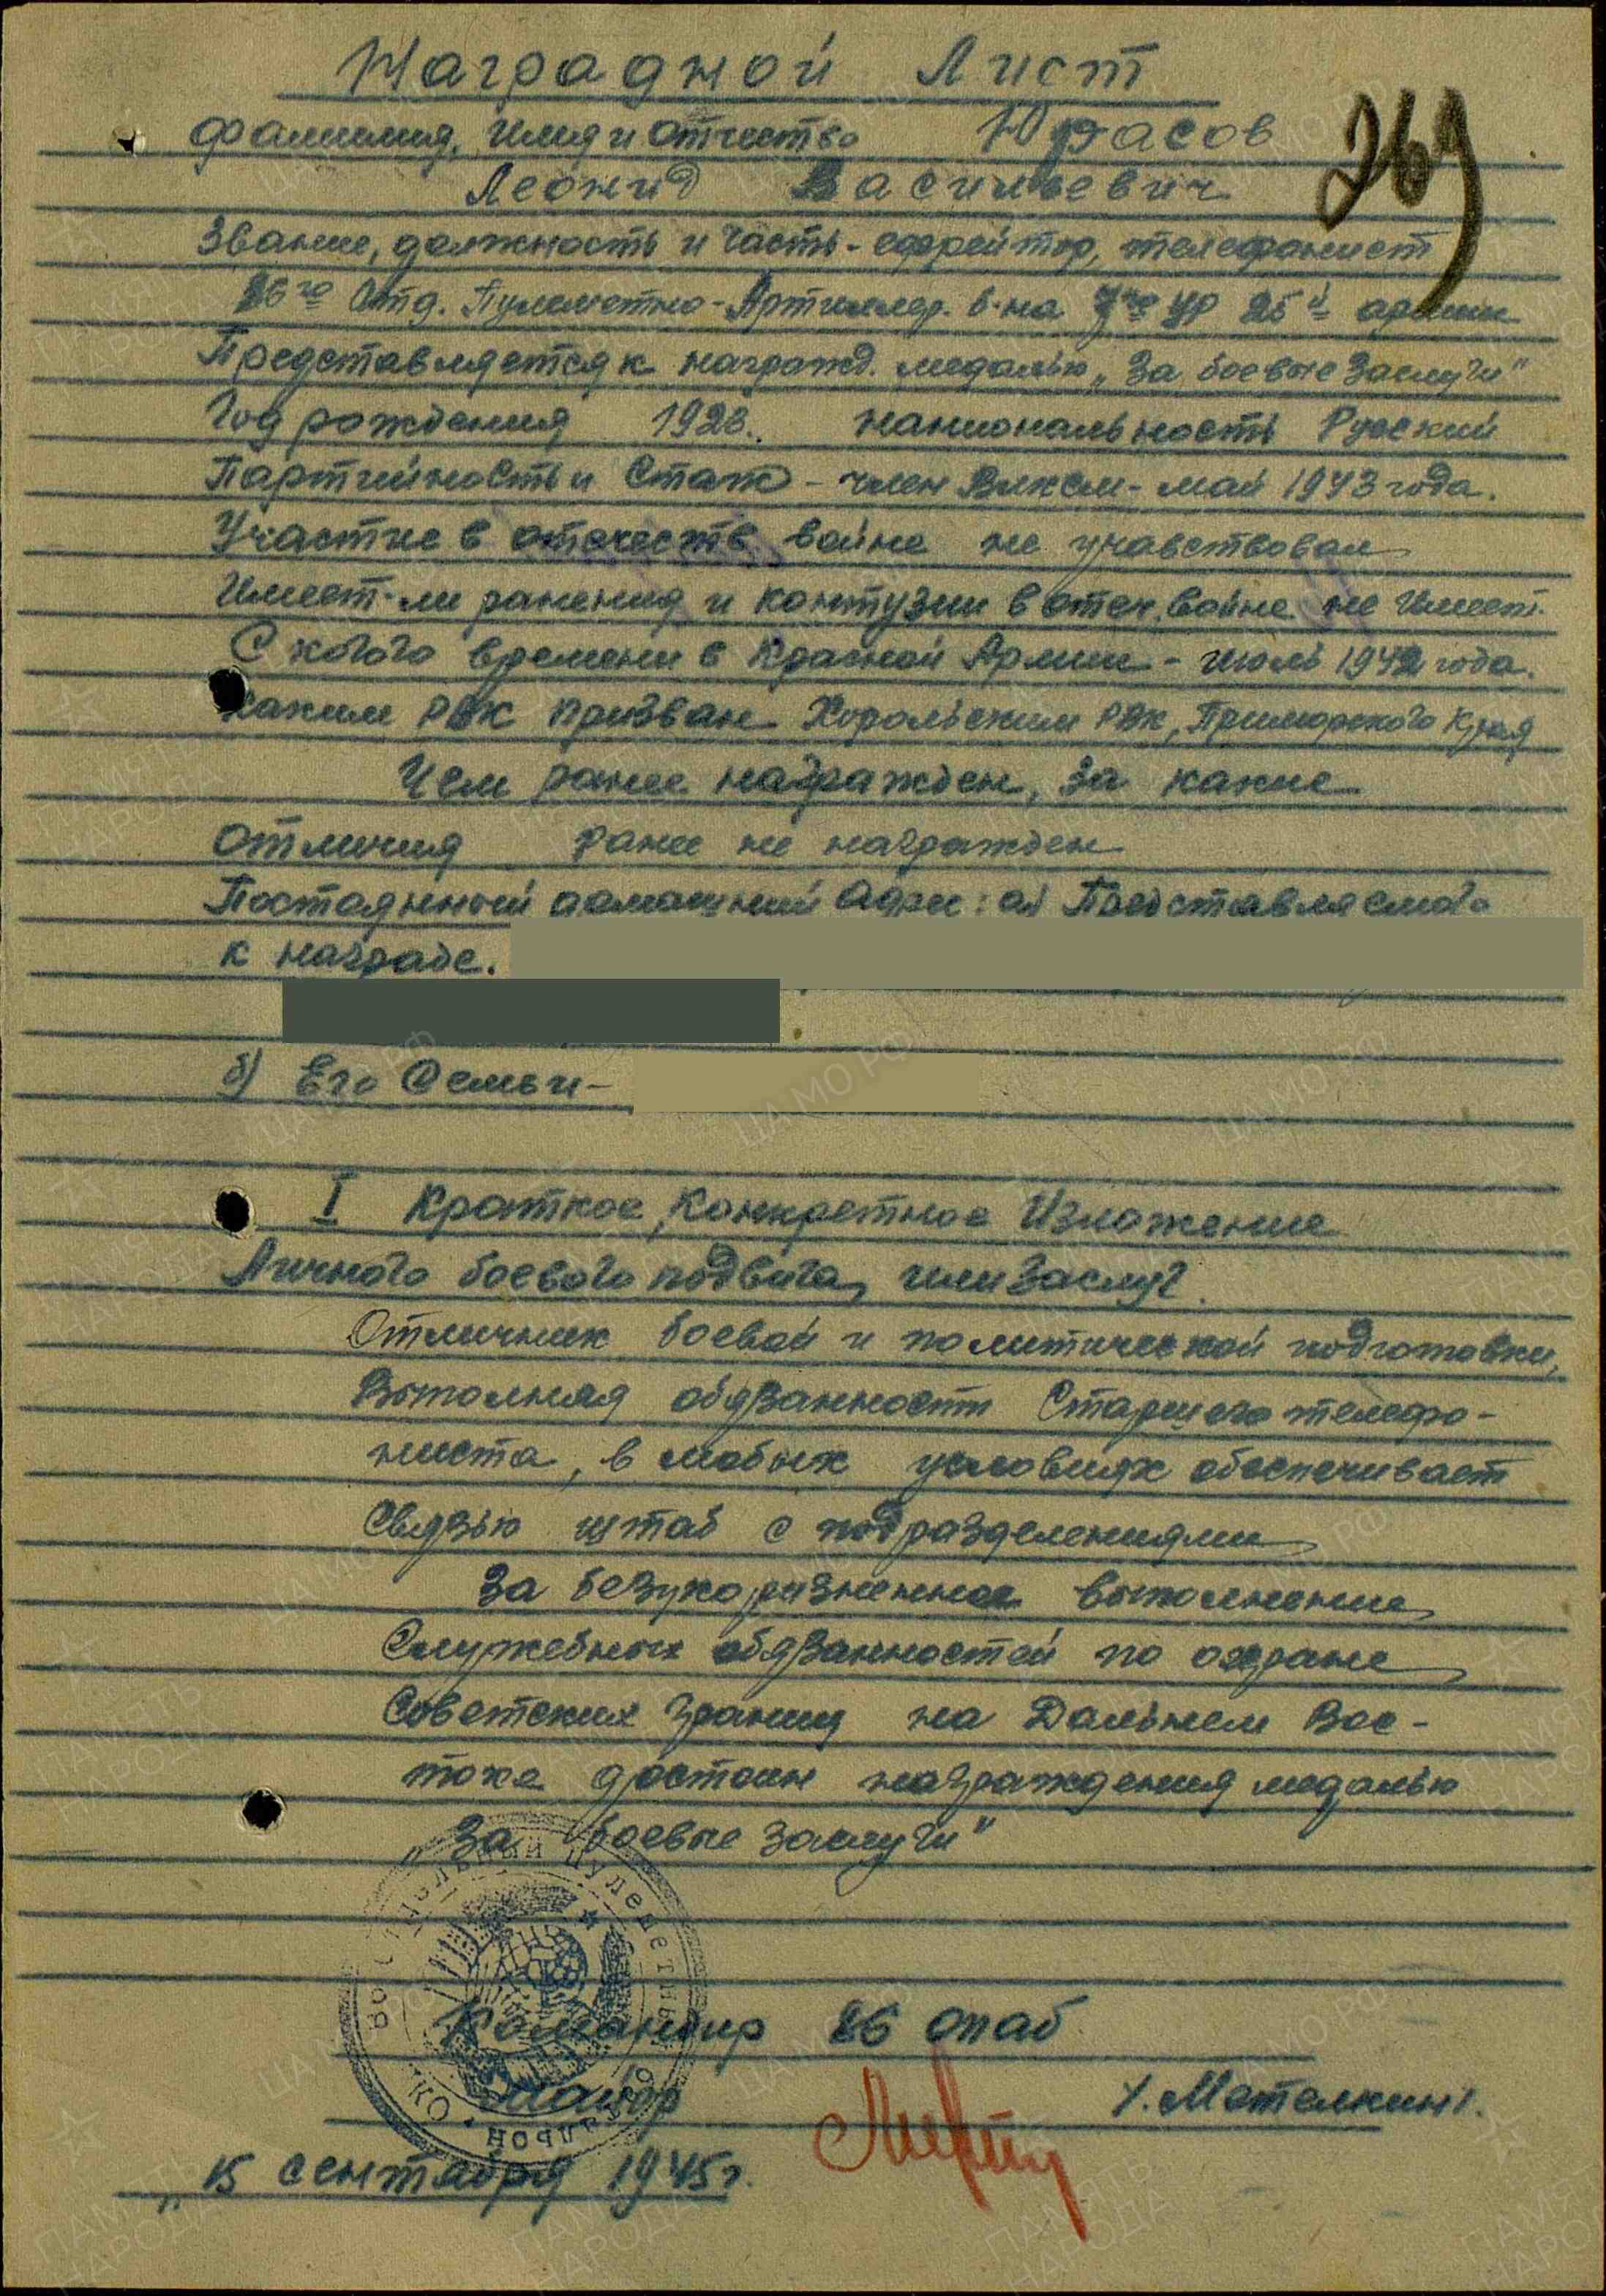 Наградной Лист
269
Фамилия, Имя и Отчество Юрасов
Леонид Васильевич
Звание, должность и часть - ефрейтор, телефонист
86го Отд. Пулеметно-Артиллер. б-на 7го УР 25й армии
Представляется к награжд. медалью „За боевые Заслуги"
Год рождения 1923. национальность Русский
Партийность и Стаж - член Влксм - май 1943 года.
Участие в отечеств войне не учавствовал
Имеет-ли ранения и контузии в отеч. войне не имеет.
С какого времени в Красной Армии - июль 1942 года.
Каким РВК призван Хорольским РВК, Приморского Края
Чем ранее награжден, за какие
отличия ранее не награжден
Постоянный домашний адрес: а) Представляемого
к награде.
б) Его Семьи -
I Краткое, Конкретное Изложение
Личного боевого подвига, или Заслуг.
Отличник боевой и политической подготовки,
Выполняя обязанности Старшего телефо-
ниста, в любых условиях обеспечивает
Связью штаб с подразделениями
За безукоризненное выполнение
Служебных обязанностей по охране
Советских границ на Дальнем Вос-
токе достоин награждения медалью
„За боевые Заслуги"
Командир 86 опаб
Майор /. Метелкин /.
„15 сентября 1945г.
ЦА МО РФ
ПАМЯТЬ НАРОДА